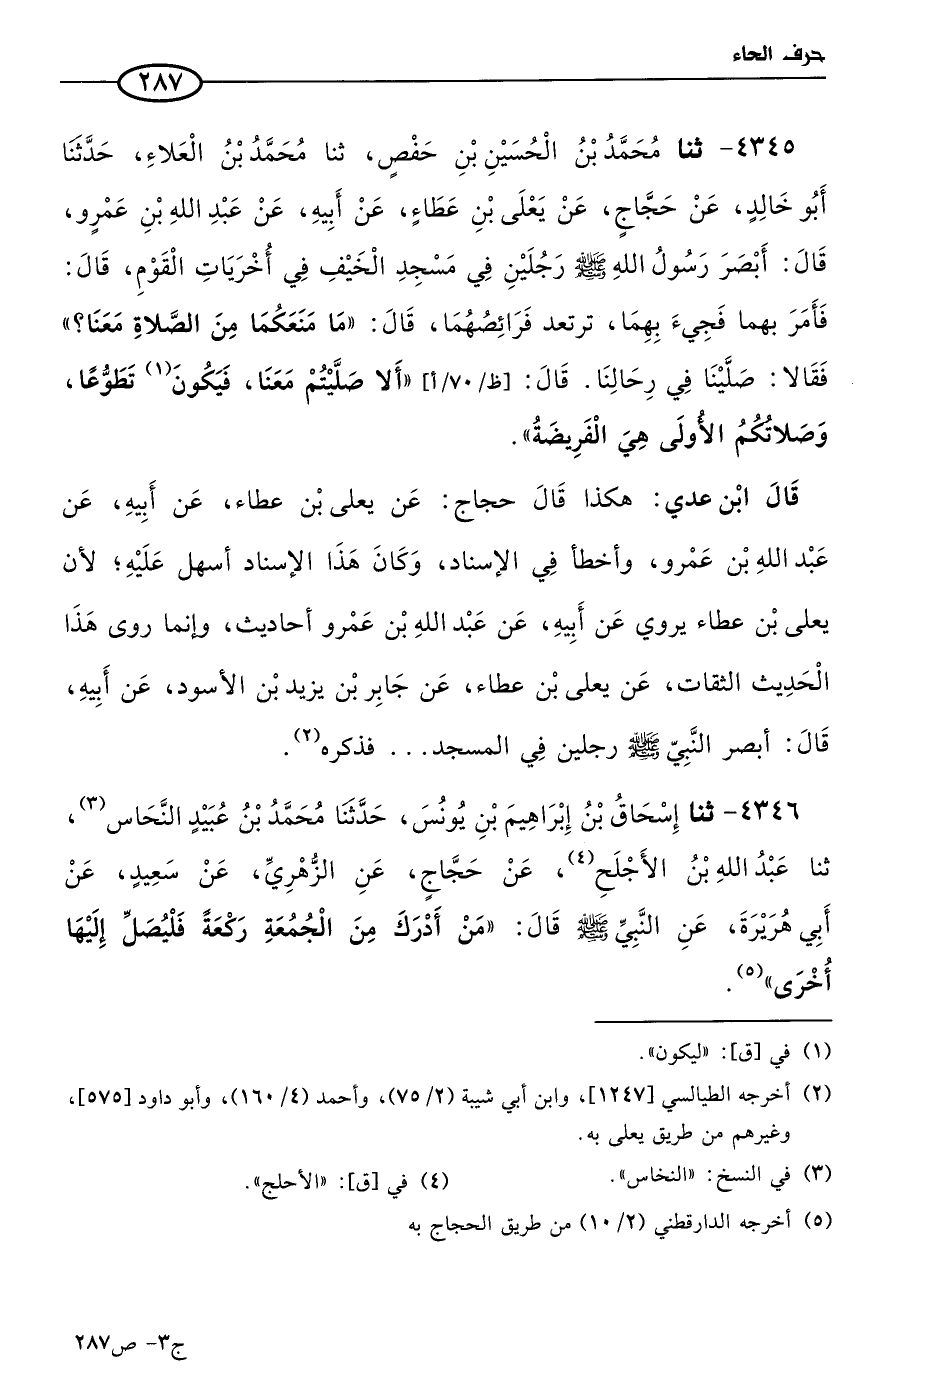 حرف الحاء
٢٨٧
٤٣٤٥- ثنا مُحَمَّدُ بْنُ الْحُسَيْنِ بْنِ حَفْصٍ، ثنا مُحَمَّدُ بْنُ الْعَلاءِ، حَدَّثَنَا
أَبُو خَالِدٍ، عَنْ حَجَّاجٍ، عَنْ يَعْلَى بْنِ عَطَاءٍ، عَنْ أَبِيهِ، عَنْ عَبْدِ اللهِ بْنِ عَمْرٍو،
قَالَ: أَبْصَرَ رَسُولُ اللهِ ﷺ رَجُلَيْنِ فِي مَسْجِدِ الْخَيْفِ فِي أُخْرَيَاتِ الْقَوْمِ، قَالَ:
فَأَمَرَ بهما فَجِيءَ بِهِمَا، ترتعد فَرَائِصُهُمَا، قَالَ: «مَا مَنَعَكُمَا مِنَ الصَّلاةِ مَعَنَا؟»
فَقَالا: صَلَّيْنَا فِي رِحَالِنَا. قَالَ: [ظ/٧٠/أ] «أَلا صَلَّيْتُمْ مَعَنَا، فَيَكُونَ(١) تَطَوُّعًا،
وَصَلاتُكُمُ الأُولَى هِيَ الْفَرِيضَةُ».
قَالَ ابْن عدي: هكذا قَالَ حجاج: عَن يعلى بْن عطاء، عَن أَبِيهِ، عَن
عَبْد اللهِ بْن عَمْرو، وأخطأ فِي الإسناد، وَكَانَ هَذَا الإسناد أسهل عَلَيْهِ؛ لأن
يعلى بْن عطاء يروي عَن أَبِيهِ، عَن عَبْد اللهِ بْن عَمْرو أحاديث، وإنما روى هَذَا
الْحَدِيث الثقات، عَن يعلى بْن عطاء، عَن جَابِر بْن يزيد بْن الأسود، عَن أَبِيهِ،
قَالَ: أبصر النَّبِيّ ﷺ رجلين فِي المسجد... فذكره(٢).
٤٣٤٦- ثنا إِسْحَاقُ بْنُ إِبْرَاهِيمَ بْنِ يُونُسَ، حَدَّثَنَا مُحَمَّدُ بْنُ عُبَيْدٍ النَّحَاس(٣)،
ثنا عَبْدُ اللهِ بْنُ الأَجْلَحِ(٤)، عَنْ حَجَّاجٍ، عَنِ الزُّهْرِيِّ، عَنْ سَعِيدٍ، عَنْ
أَبِي هُرَيْرَةَ، عَنِ النَّبِيِّ ﷺ قَالَ: «مَنْ أَدْرَكَ مِنَ الْجُمُعَةِ رَكْعَةً فَلْيُصَلِّ إِلَيْهَا
أُخْرَى»(٥).
(١) في [ق]: «ليكون».
(٢) أخرجه الطيالسي [١٢٤٧]، وابن أبي شيبة (٧٥/٢)، وأحمد (١٦٠/٤)، وأبو داود [٥٧٥]،
وغيرهم من طريق يعلى به.
(٣) في النسخ: «النخاس». (٤) في [ق]: «الأحلج».
(٥) أخرجه الدارقطني (١٠/٢) من طريق الحجاج به
ج٣- ص٢٨٧